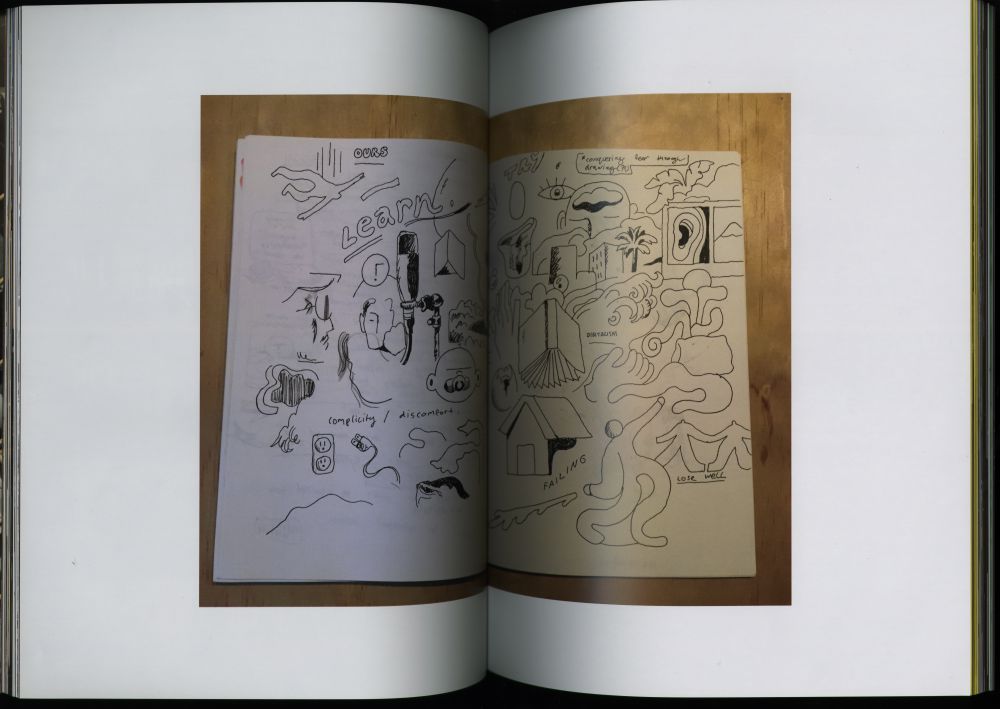 OURS
Learn!
complicity / discomfort..
TRY
*conquering fear through
drawing(?)
FAILING
LOSE WELL